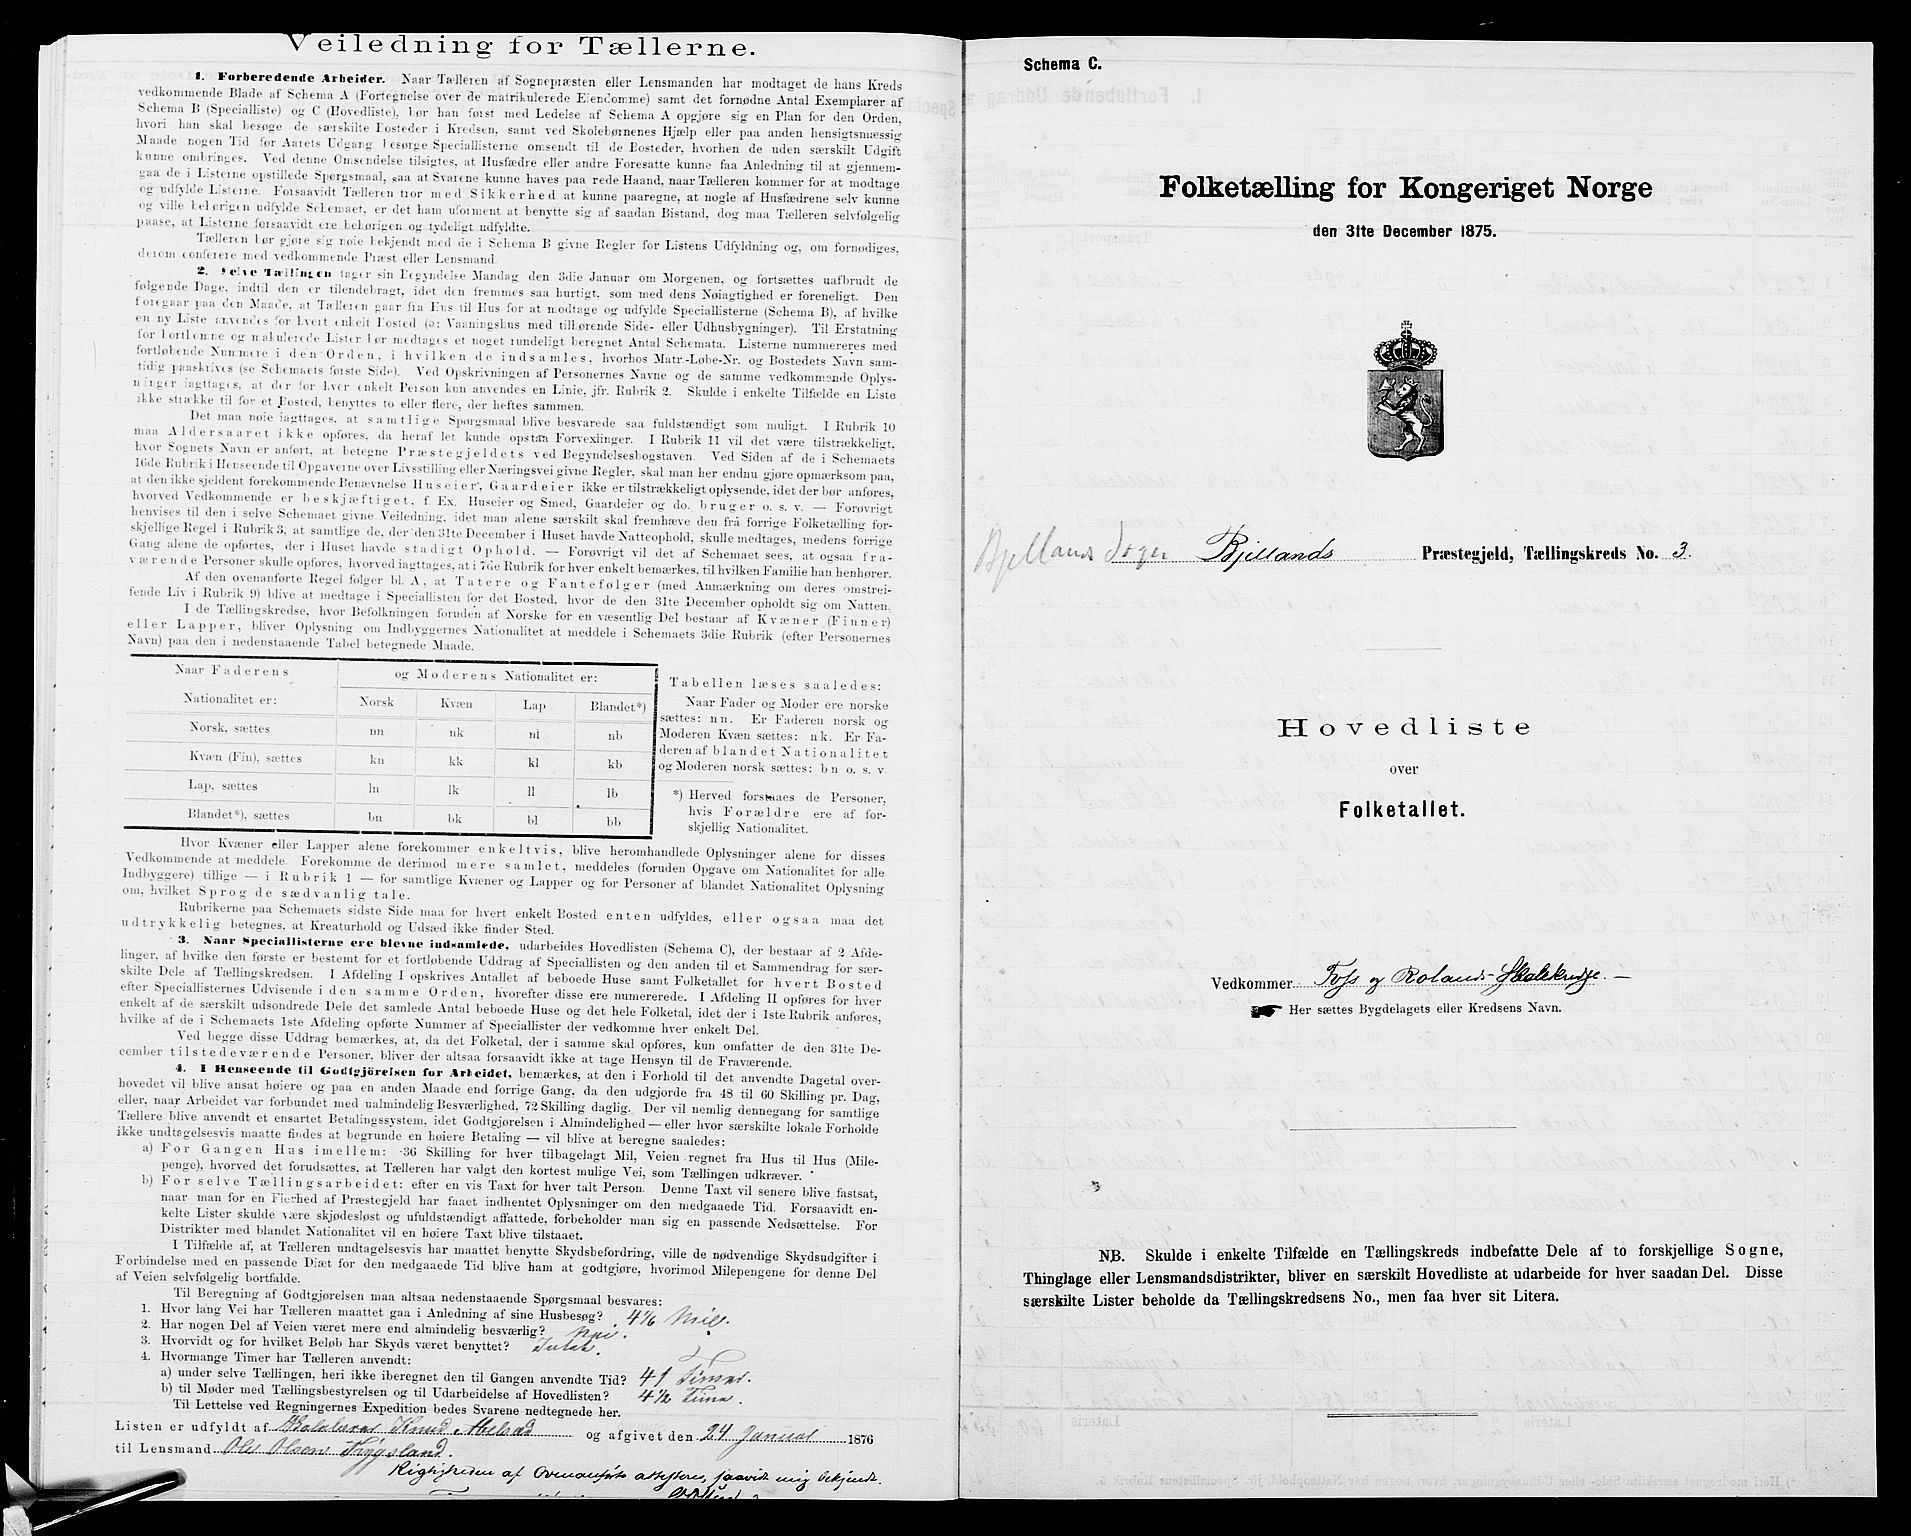 Veiledning for Tællerne.
1. Forberedende Arbeider. Naar Tælleren af Sognepræsten eller Lensmanden har modtaget de hans Kreds
vedkommende Blade af Schema A (Fortegnelse over de matrikulerede Eiendomme) samt det fornødne Antal Exemplarer af
Schema B (Specialliste) og C (Hovedliste), bør han først med Ledelse af Schema A opgjøre sig en Plan for den Orden,
hvori han skal besøge de særskilte Bosteder i Kredsen, samt ved Skolebørnenes Hjælp eller paa anden hensigtsmæssig
Maade nogen Tid før Aarets Udgang besørge Speciallisterne omsendt til de Bosteder, hvorhen de uden særskilt Udgift
kunne ombringes. Ved denne Omsendelse tilsigtes, at Husfædre eller andre Foresatte kunne faa Anledning til at gjennem-
gaa de i Listerne opstillede Spørgsmaal, saa at Svarene kunne haves paa rede Haand, naar Tælleren kommer for at modtage
og udfylde Listerne. Forsaavidt Tælleren tror med Sikkerhed at kunne paaregne, at nogle af Husfædrene selv kunne
og ville behørigen udfylde Schemaet, er det ham uforment at benytte sig af saadan Bistand, dog maa Tælleren selvfølgelig
paase, at Listerne forsaavidt ere behørigen og tydeligt udfyldte.
Tælleren bør gjøre sig nøie bekjendt med de i Schema B givne Regler for Listens Udfyldning og, om fornødiges,
derom conferere med vedkommende Præst eller Lensmand.
2. Selve Tællingen tager sin Begyndelse Mandag den 3die Januar om Morgenen, og fortsættes uafbrudt de
følgende Dage, indtil den er tilendebragt, idet den fremmes saa hurtigt, som med dens Nøiagtighed er foreneligt. Den
foregaar paa den Maade, at Tælleren gaar fra Hus til Hus for at modtage og udfylde Speciallisterne (Schema B), af hvilke
en ny Liste anvendes for hvert enkelt Bosted (ɔ: Vaaningshus med tilhørende Side- eller Udhusbygninger). Til Erstatning
for bortkomne og makulerede Lister bør medtages et noget rundeligt beregnet Antal Schemata. Listerne nummereres med
fortløbende Nummere i den Orden, i hvilken de indsamles, hvorhos Matr.-Løbe-Nr. og Bostedets Navn sam-
tidig paaskrives (se Schemaets første Side). Ved Opskrivningen af Personernes Navne og de samme vedkommende Oplys-
ninger iagttages, at der for hver enkelt Person kun anvendes en Linie, jfr. Rubrik 2. Skulde i enkelte Tilfælde en Liste
ikke strække til for et Bosted, benyttes to eller flere, der heftes sammen.
Det maa nøie iagttages, at samtlige Spørgsmaal blive besvarede saa fuldstændigt som muligt. I Rubrik 10
maa Aldersaaret ikke opføres, da heraf let kunde opstaa Forvexlinger. I Rubrik 11 vil det være tilstrækkeligt,
hvor Sognets Navn er anført, at betegne Præstegjeldets ved Begyndelsesbogstaven. Ved Siden af de i Schemaets
16de Rubrik i Henseende til Opgaverne over Livsstilling eller Næringsvei givne Regler, skal man her endnu gjøre opmærksom paa,
at den ikke sjeldent forekommende Benævnelse Huseier, Gaardeier ikke er tilstrækkeligt oplysende, idet der bør anføres,
hvorved Vedkommende er beskjæftiget, f. Ex. Huseier og Smed, Gaardeier og do. bruger o. s. v. — Forøvrigt
henvises til den i selve Schemaet givne Veiledning, idet man alene særskilt skal fremhæve den fra forrige Folketælling for-
skjellige Regel i Rubrik 3, at samtlige de, der den 31te December i Huset havde Natteophold, skulle medtages, medens forrige
Gang alene de opførtes, der i Huset havde stadigt Ophold. — Forøvrigt vil det af Schemaet sees, at ogsaa fra-
værende Personer skulle opføres, hvorved iagttages, at i 7de Rubrik for hver enkelt bemærkes, til hvilken Familie han henhører.
Af den ovenanførte Regel følger bl. A., at Tatere og Fantefølger (med Anmærkning om deres omstrei-
fende Liv i Rubrik 9) blive at medtage i Speciallisten for det Bosted, hvor de den 31te December opholdt sig om Natten.
I de Tællingskredse, hvor Befolkningen foruden af Norske for en væsentlig Del bestaar af Kvæner (Finner)
eller Lapper, bliver Oplysning om Indbyggernes Nationalitet at meddele i Schemaets 3die Rubrik (efter Personernes
Navn) paa den i nedenstaaende Tabel betegnede Maade.
Naar Faderens og Moderens Nationalitet er:
Nationalitet er: Norsk Kvæn Lap Blandet*)
Norsk, sættes nn nk nl nb
Kvæn (Fin), sættes kn kk kl kb
Lap, sættes ln lk ll lb
Blandet*), sættes bn bk bl bb
Tabellen læses saaledes:
Naar Fader og Moder ere norske
sættes: nn. Er Faderen norsk og
Moderen Kvæn sættes: nk. Er Fa-
deren af blandet Nationalitet
og Moderen norsk sættes: bn o. s. v.
*) Herved forstaaes de Personer,
hvis Forældre ere af for-
skjellig Nationalitet.
Hvor Kvæner eller Lapper alene forekommer enkeltvis, blive heromhandlede Oplysninger alene for disses
Vedkommende at meddele. Forekomme de derimod mere samlet, meddeles (foruden Opgave om Nationalitet for alle
Indbyggere) tillige — i Rubrik 1 — for samtlige Kvæner og Lapper og for Personer af blandet Nationalitet Oplysning
om, hvilket Sprog de sædvanlig tale.
Rubrikerne paa Schemaets sidste Side maa for hvert enkelt Bosted enten udfyldes, eller ogsaa maa det
udtrykkelig betegnes, at Kreaturhold og Udsæd ikke finder Sted.
3. Naar Speciallisterne ere blevne indsamlede, udarbeides Hovedlisten (Schema C), der bestaar af 2 Afde-
linger, af hvilke den første er bestemt for et fortløbende Uddrag af Speciallisten og den anden til et Sammendrag for sær-
skilte Dele af Tællingskredsen. I Afdeling I opskrives Antallet af beboede Huse samt Folketallet for hvert Bosted
efter Speciallisternes Udvisende i den samme Orden, hvorefter disse ere numererede. I Afdeling II opføres for hver
enkelt af de særskilt udsondrede Dele det samlede Antal beboede Huse og det hele Folketal, idet der i 1ste Rubrik anføres,
hvilke af de i Schemaets 1ste Afdeling opførte Nummer af Speciallister der vedkomme hver enkelt Del.
Ved begge disse Uddrag bemærkes, at, da det Folketal, der i samme skal opføres, kun omfatter de den 31te De-
cember tilstedeværende Personer, bliver der altsaa forsaavidt ikke at tage Hensyn til de Fraværende.
4. I Henseende til Godtgjörelsen for Arbeidet, bemærkes, at den i Forhold til det anvendte Dagetal over-
hovedet vil blive ansat høiere og paa en anden Maade end forrige Gang, da den udgjorde fra 48 til 60 Skilling pr. Dag,
eller, naar Arbeidet var forbundet med ualmindelig Besværlighed, 72 Skilling daglig. Der vil nemlig dennegang for samtlige
Tællere blive anvendt et ensartet Betalingssystem, idet Godtgjørelsen i Almindelighed — eller hvor særskilte lokale Forholde
ikke undtagelsesvis maatte findes at begrunde en høiere Betaling — vil blive at beregne saaledes:
a) For Gangen Hus imellem: 36 Skilling for hver tilbagelagt Mil, Veien regnet fra Hus til Hus (Mile-
penge), hvorved det forudsættes, at Tælleren har valgt den kortest mulige Vei, som Tællingen udkræver.
b) For selve Tællingsarbeidet: efter en vis Taxt for hver talt Person. Denne Taxt vil senere blive fastsat,
naar man for en Fierhed af Præstegjeld har faaet indhentet Oplysninger om den medgaaede Tid. Forsaavidt en-
kelte Lister skulde være skjødesløst og ufuldstændigt affattede, forbeholder man sig en passende Nedsættelse. For
Distrikter med blandet Nationalitet vil en høiere Taxt blive tilstaaet.
I Tilfælde af, at Tælleren undtagelsesvis har maattet benytte Skydsbefordring, ville de nødvendige Skydsudgifter i
Forbindelse med en passende Diæt for den medgaaede Tid blive ham at godtgjøre, hvorimod Milepengene for denne Del
af Veien selvfølgelig bortfalde.
Til Beregning af Godtgjørelsen maa altsaa nedenstaaende Spørgsmaal besvares:
1. Hvor lang Vei har Tælleren maattet gaa i Anledning af sine Husbesøg? 4 1/6 Miil.
2. Har nogen Del af Veien været mere end almindelig besværlig? Nei.
3. Hvorvidt og for hvilket Beløb har Skyds været benyttet? Intet.
4. Hvormange Timer har Tælleren anvendt:
a) under selve Tællingen, heri ikke iberegnet den til Gangen anvendte Tid? 41 Timer.
b) til Møder med Tællingsbestyrelsen og til Udarbeidelse af Hovedlisten? 4 1/2 Time.
Til Lettelse ved Regningernes Expedition bedes Svarene nedtegnede her.
Listen er udfyldt af Knud og afgivet den 24 Januar 1876
til Lensmand Ole Olsen Trygsland.
Rigtigheden af Ovenanførte attesteres, saavidt mig bekjendt.
Schema C.
Folketælling for Kongeriget Norge
den 31te December 1875.
Bjellands Sogn Bjellands Præstegjeld, Tællingskreds No. 3.
Hovedliste
over
Folketallet.
Vedkommer Foss og Rolands Skolekredse. —
Her sættes Bygdelagets eller Kredsens Navn.
NB. Skulde i enkelte Tilfælde en Tællingskreds indbefatte Dele af to forskjellige Sogne,
Thinglage eller Lensmandsdistrikter, bliver en særskilt Hovedliste at udarbeide for hver saadan Del. Disse
særskilte Lister beholde da Tællingskredsens No., men faa hver sit Litera.